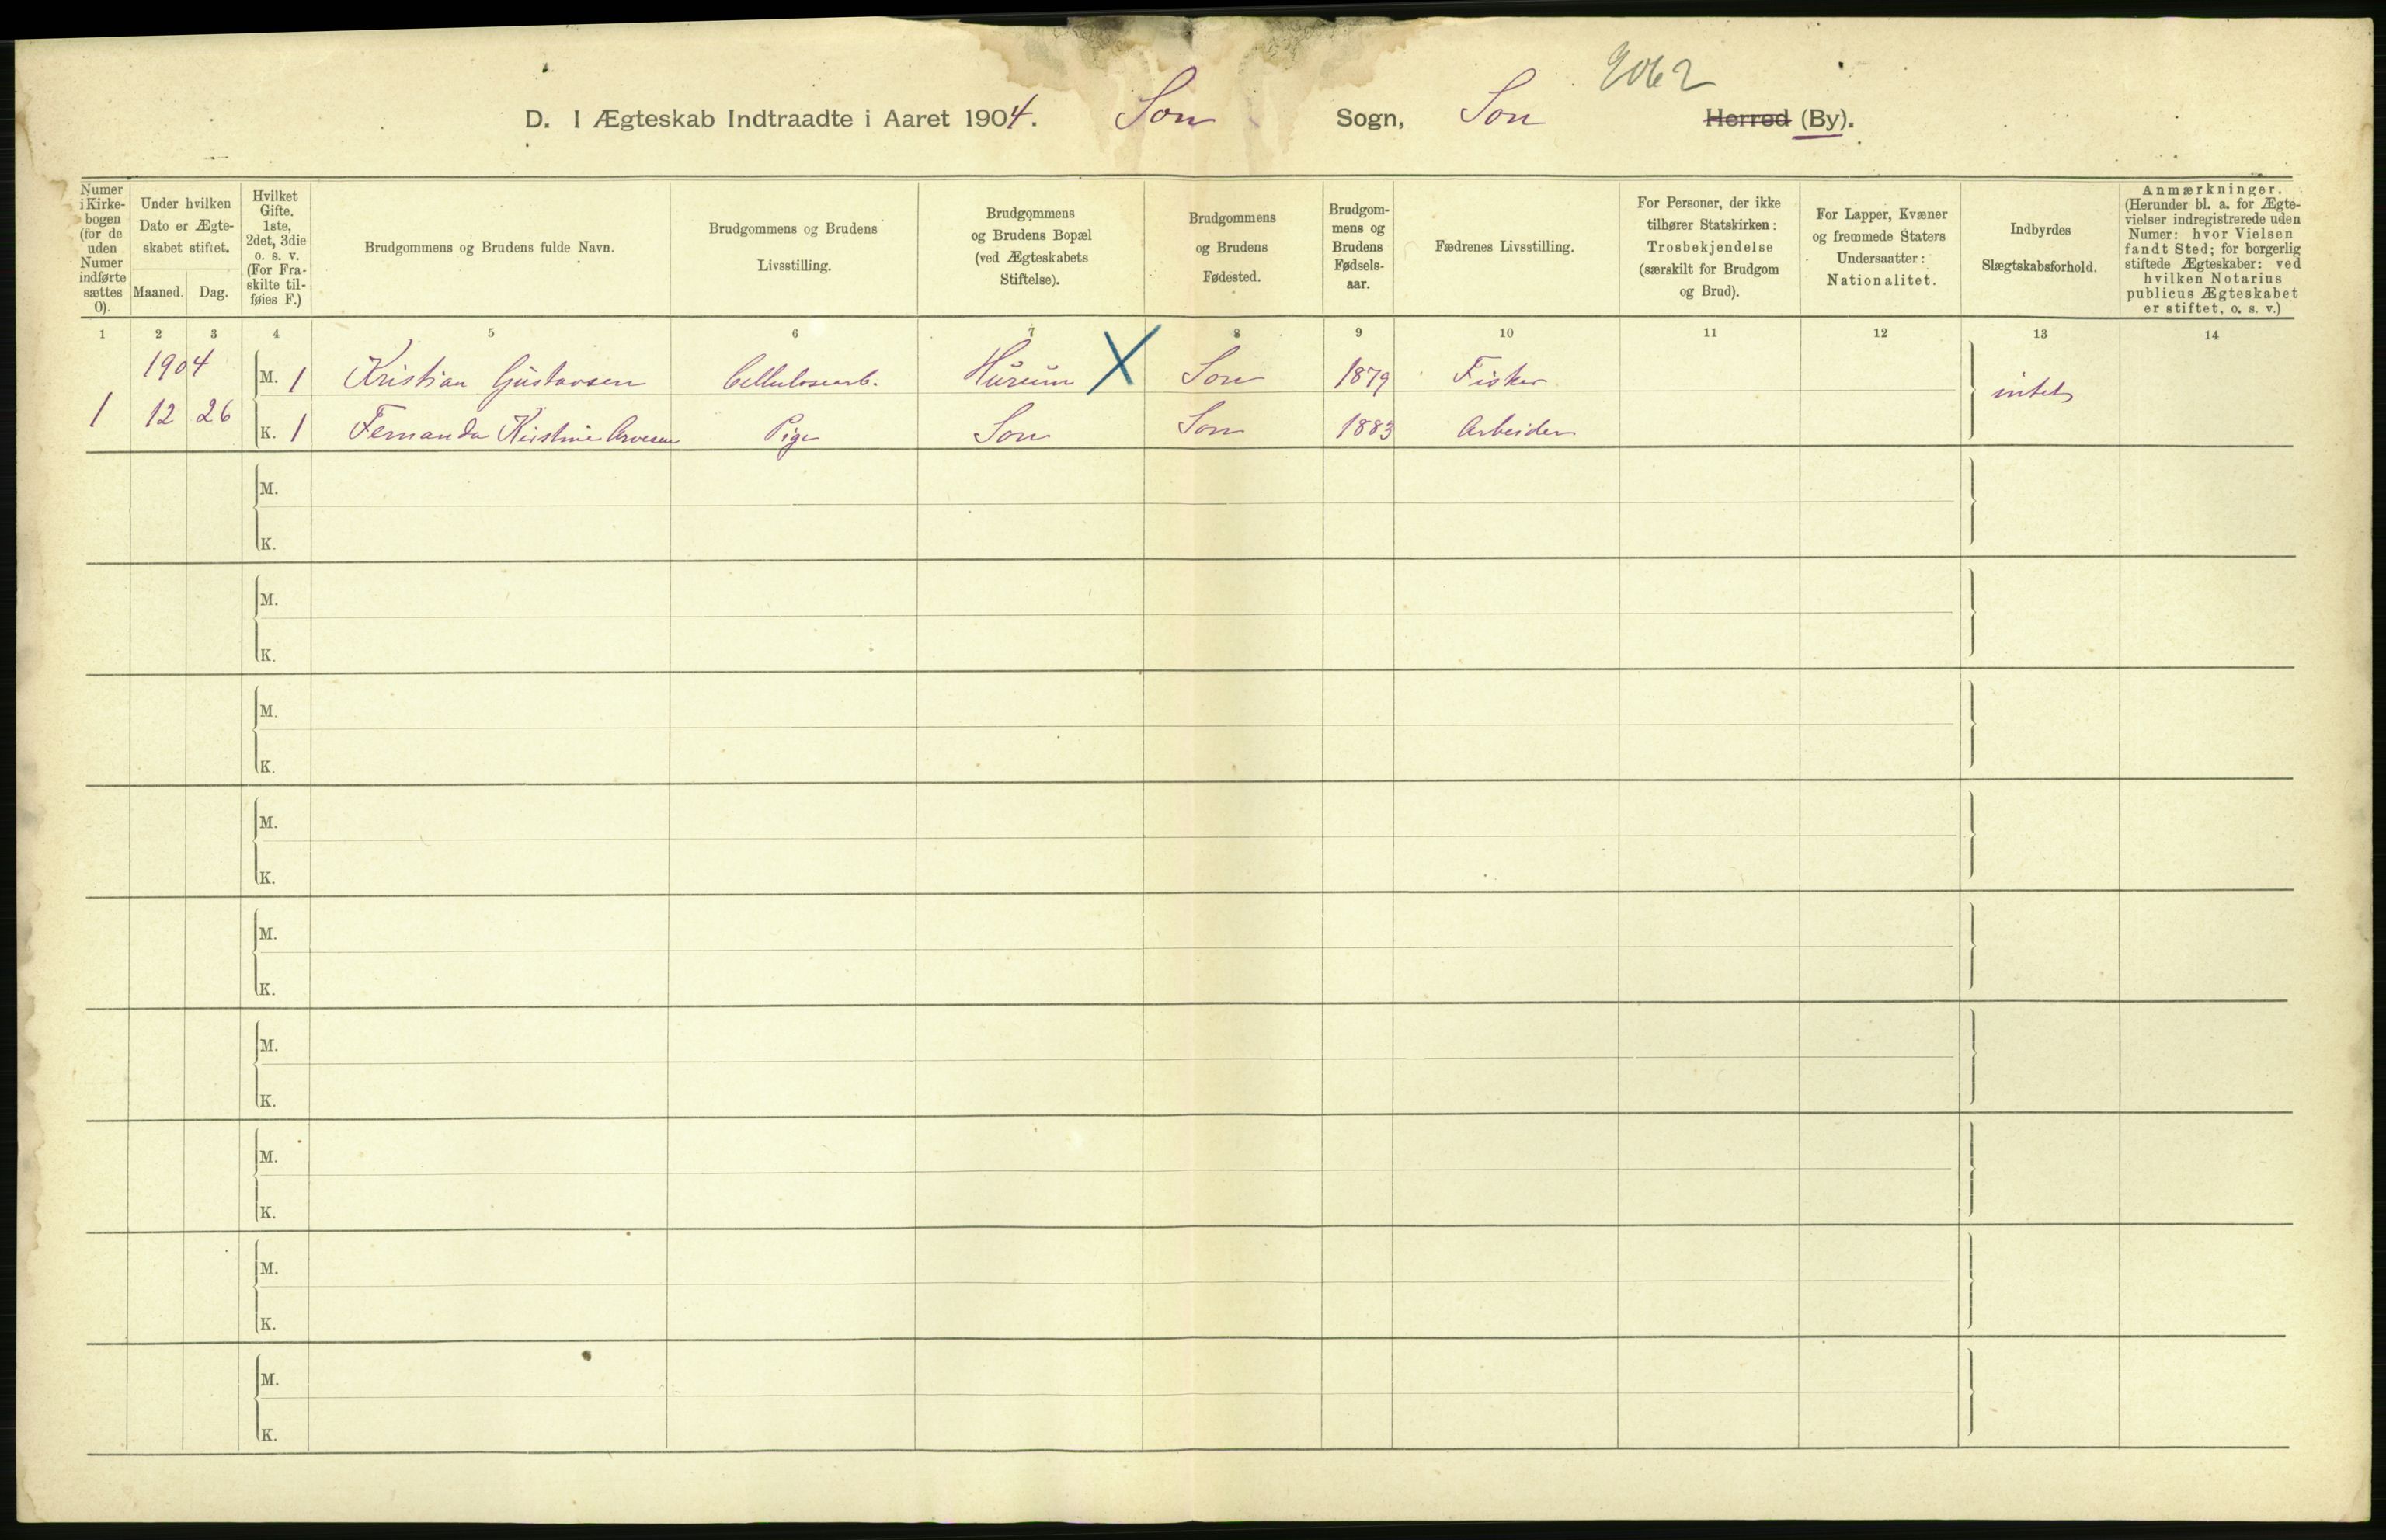 2062
D. I Ægteskab Indtraadte i Aaret 1904. Son Sogn, Son Herred (By).
Numer i Kirkebogen (for de uden Numer indførte sættes 0).
Under hvilken Dato er Ægteskabet stiftet.
Maaned. Dag.
Hvilket Gifte. 1ste, 2det, 3die o. s. v. (For Fraskilte tilføies F.)
Brudgommens og Brudens fulde Navn.
Brudgommens og Brudens Livsstilling.
Brudgommens og Brudens Bopæl (ved Ægteskabets Stiftelse).
Brudgommens og Brudens Fødested.
Brudgommens og Brudens Fødselsaar.
Fædrenes Livsstilling.
For Personer, der ikke tilhører Statskirken: Trosbekjendelse (særskilt for Brudgom og Brud).
For Lapper, Kvæner og fremmede Staters Undersaatter: Nationalitet.
Indbyrdes Slægtskabsforhold.
Anmærkninger. (Herunder bl. a. for Ægtevielser indregistrerede uden Numer: hvor Vielsen fandt Sted; for borgerlig stiftede Ægteskaber: ved hvilken Notarius publicus Ægteskabet er stiftet, o. s. v.)
1 2 3 4 5 6 7 8 9 10 11 12 13 14
1904 M. 1 Kristian Gustavsen Cellulosearb. Hurum X Son 1879 Fisker intet
1 12 26 K. 1 Fernanda Kristine Arvesen Pige Son Son 1883 Arbeider
M.
K.
M.
K.
M.
K.
M.
K.
M.
K.
M.
K.
M.
K.
M.
K.
M.
K.